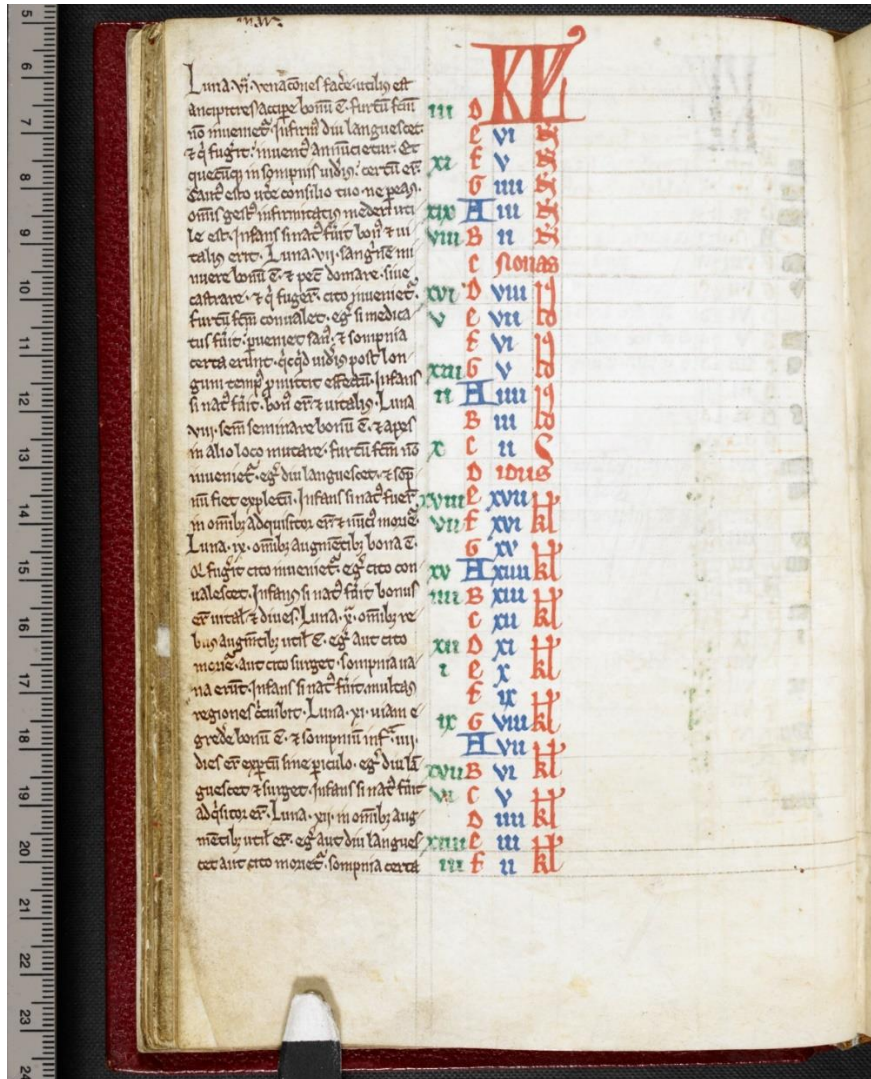 Luna .vi. venac̃ones fac̃e. utiliꝰ est
ancipitres accipe bonũ ẽ. furtũ fc̃m
nõ inveniet᷑. Infirmꝰ diu languescet:
⁊ q̇ fugit: invent᷑ annuncietur. Et
quecũq; in sompnis vidiꝰ: certũ er̃.
Cautꝰ esto
consilio tuo. ne pereas.
omĩs
infirmitatis mederi uti
le est. Infans si natꝰ fũit bonꝰ ⁊ ui
talis erit. Luna .vii. sang̾nẽ mi
nuere bonũ ẽ. ⁊ pec̃ domare. siue
castrare. ⁊ q̇ fuger̃. cito inveniet᷑.
furtũ fc̃m conualet. eg̾ si medica
tus fũit: pueniet sanꝰ. ⁊ sompnia
certa erũnt. q̇cq̇d vidiꝰ post lon
gum tempꝰ
effectũ. Infans
si natꝰ fũit. bonꝰ er̃ ⁊ vitalis. Luna
viii. sem̃ seminare bonũ ẽ. ⁊ apes
in alio loco mutare. furtũ fc̃m nõ
inveniet᷑. eg̾ diu languescet. ⁊ sop̃
nũ fiet expletũ. Infans si natꝰ fuer̃
in omĩbꝫ adquisitor er̃ ⁊
Luna .ix. omĩbꝫ augmẽtibꝫ bona ẽ.
Q̇ fugit cito inveniet᷑. eg̾ cito con
ualescet. Infans si natꝰ fũit bonus
er̃ vital᷑ ⁊ dives. Luna .x. omĩbꝫ re
bus augm̃tibꝫ util᷑ ẽ. eg̾ aut cito
moriet᷑. aut cito surget. sompnia ua
na erũt. Infans si natꝰ fũit. multas
regiones
Luna .xi. uiam e
grede bonũ ẽ. ⁊ sompniũ inf᷑ .iiii.
dies er̃ exp̃tũ sine piculo. eg̾ diu lã
guescet ⁊ surget. Infans si natꝰ fũit
adq̇sitor er̃. Luna .xii. in omĩbꝫ aug
mẽtibꝫ util᷑ er̃. eg̾ aut diu langues
cet aut cito moriet᷑. sompnia certa
KL
iii D
e vi
xi f v
G iiii
xix A iii
viii B ii
c Nonas
xvi D viii id
v e vii
f vi id
xiii G v
ii A iiii id
B iii
x c ii
D idus
xviii e xvii kl
vii f xvi
G xv kl
xv A xiiii
iiii B xiii kl
c xii
xii D xi kl
i e x
f ix kl
ix G viii
A vii kl
xvii B vi
vi c v kl
D iiii
xiiii e iii kl
iii f ii
5
6
7
8
9
10
11
12
13
14
15
16
17
18
19
20
21
22
23
24